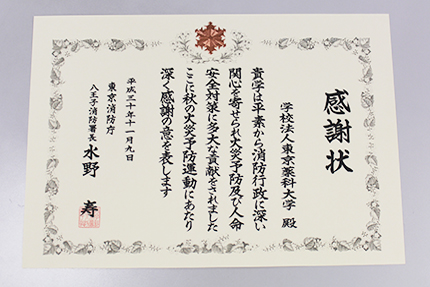 感謝状
学校法人東京薬科大学 殿
貴学は平素から消防行政に深い
関心を寄せられ火災予防及び人命
安全対策に多大な貢献をされました
ここに秋の火災予防運動にあたり
深く感謝の意を表します
平成三十年十一月九日
東京消防庁
八王子消防署長 水野 寿